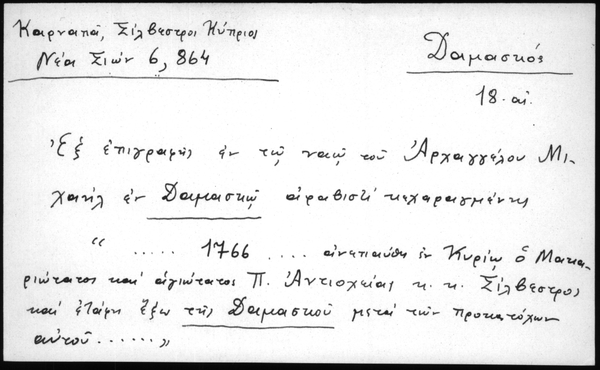 Καρναπᾶ, Σίλβεστρος Κύπριος
Νέα Σιών 6, 864
Δαμασκός
18. αἰ.
Ἐξ ἐπιγραφῆς ἐν τῷ ναῷ τοῦ Ἀρχαγγέλου Μι-
χαήλ ἐν Δαμασκῷ ἀραβιστί κεχαραγμένης
“ ..... 1766 .... ἀνεπαύθη ἐν Κυρίῳ ὁ Μακα-
ριώτατος καί ἁγιώτατος Π. Ἀντιοχείας κ. κ. Σίλβεστρος
καί ἐτάφη ἔξω τῆς Δαμασκοῦ μετά τῶν προκατόχων
αὐτοῦ ...... „